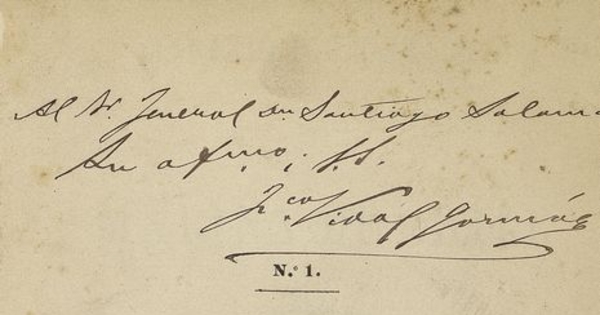 Al Sr. Jeneral Dn. Santiago Salam
Su afmo. S.S.
Fco. Vidal Gormáz
N.o 1.